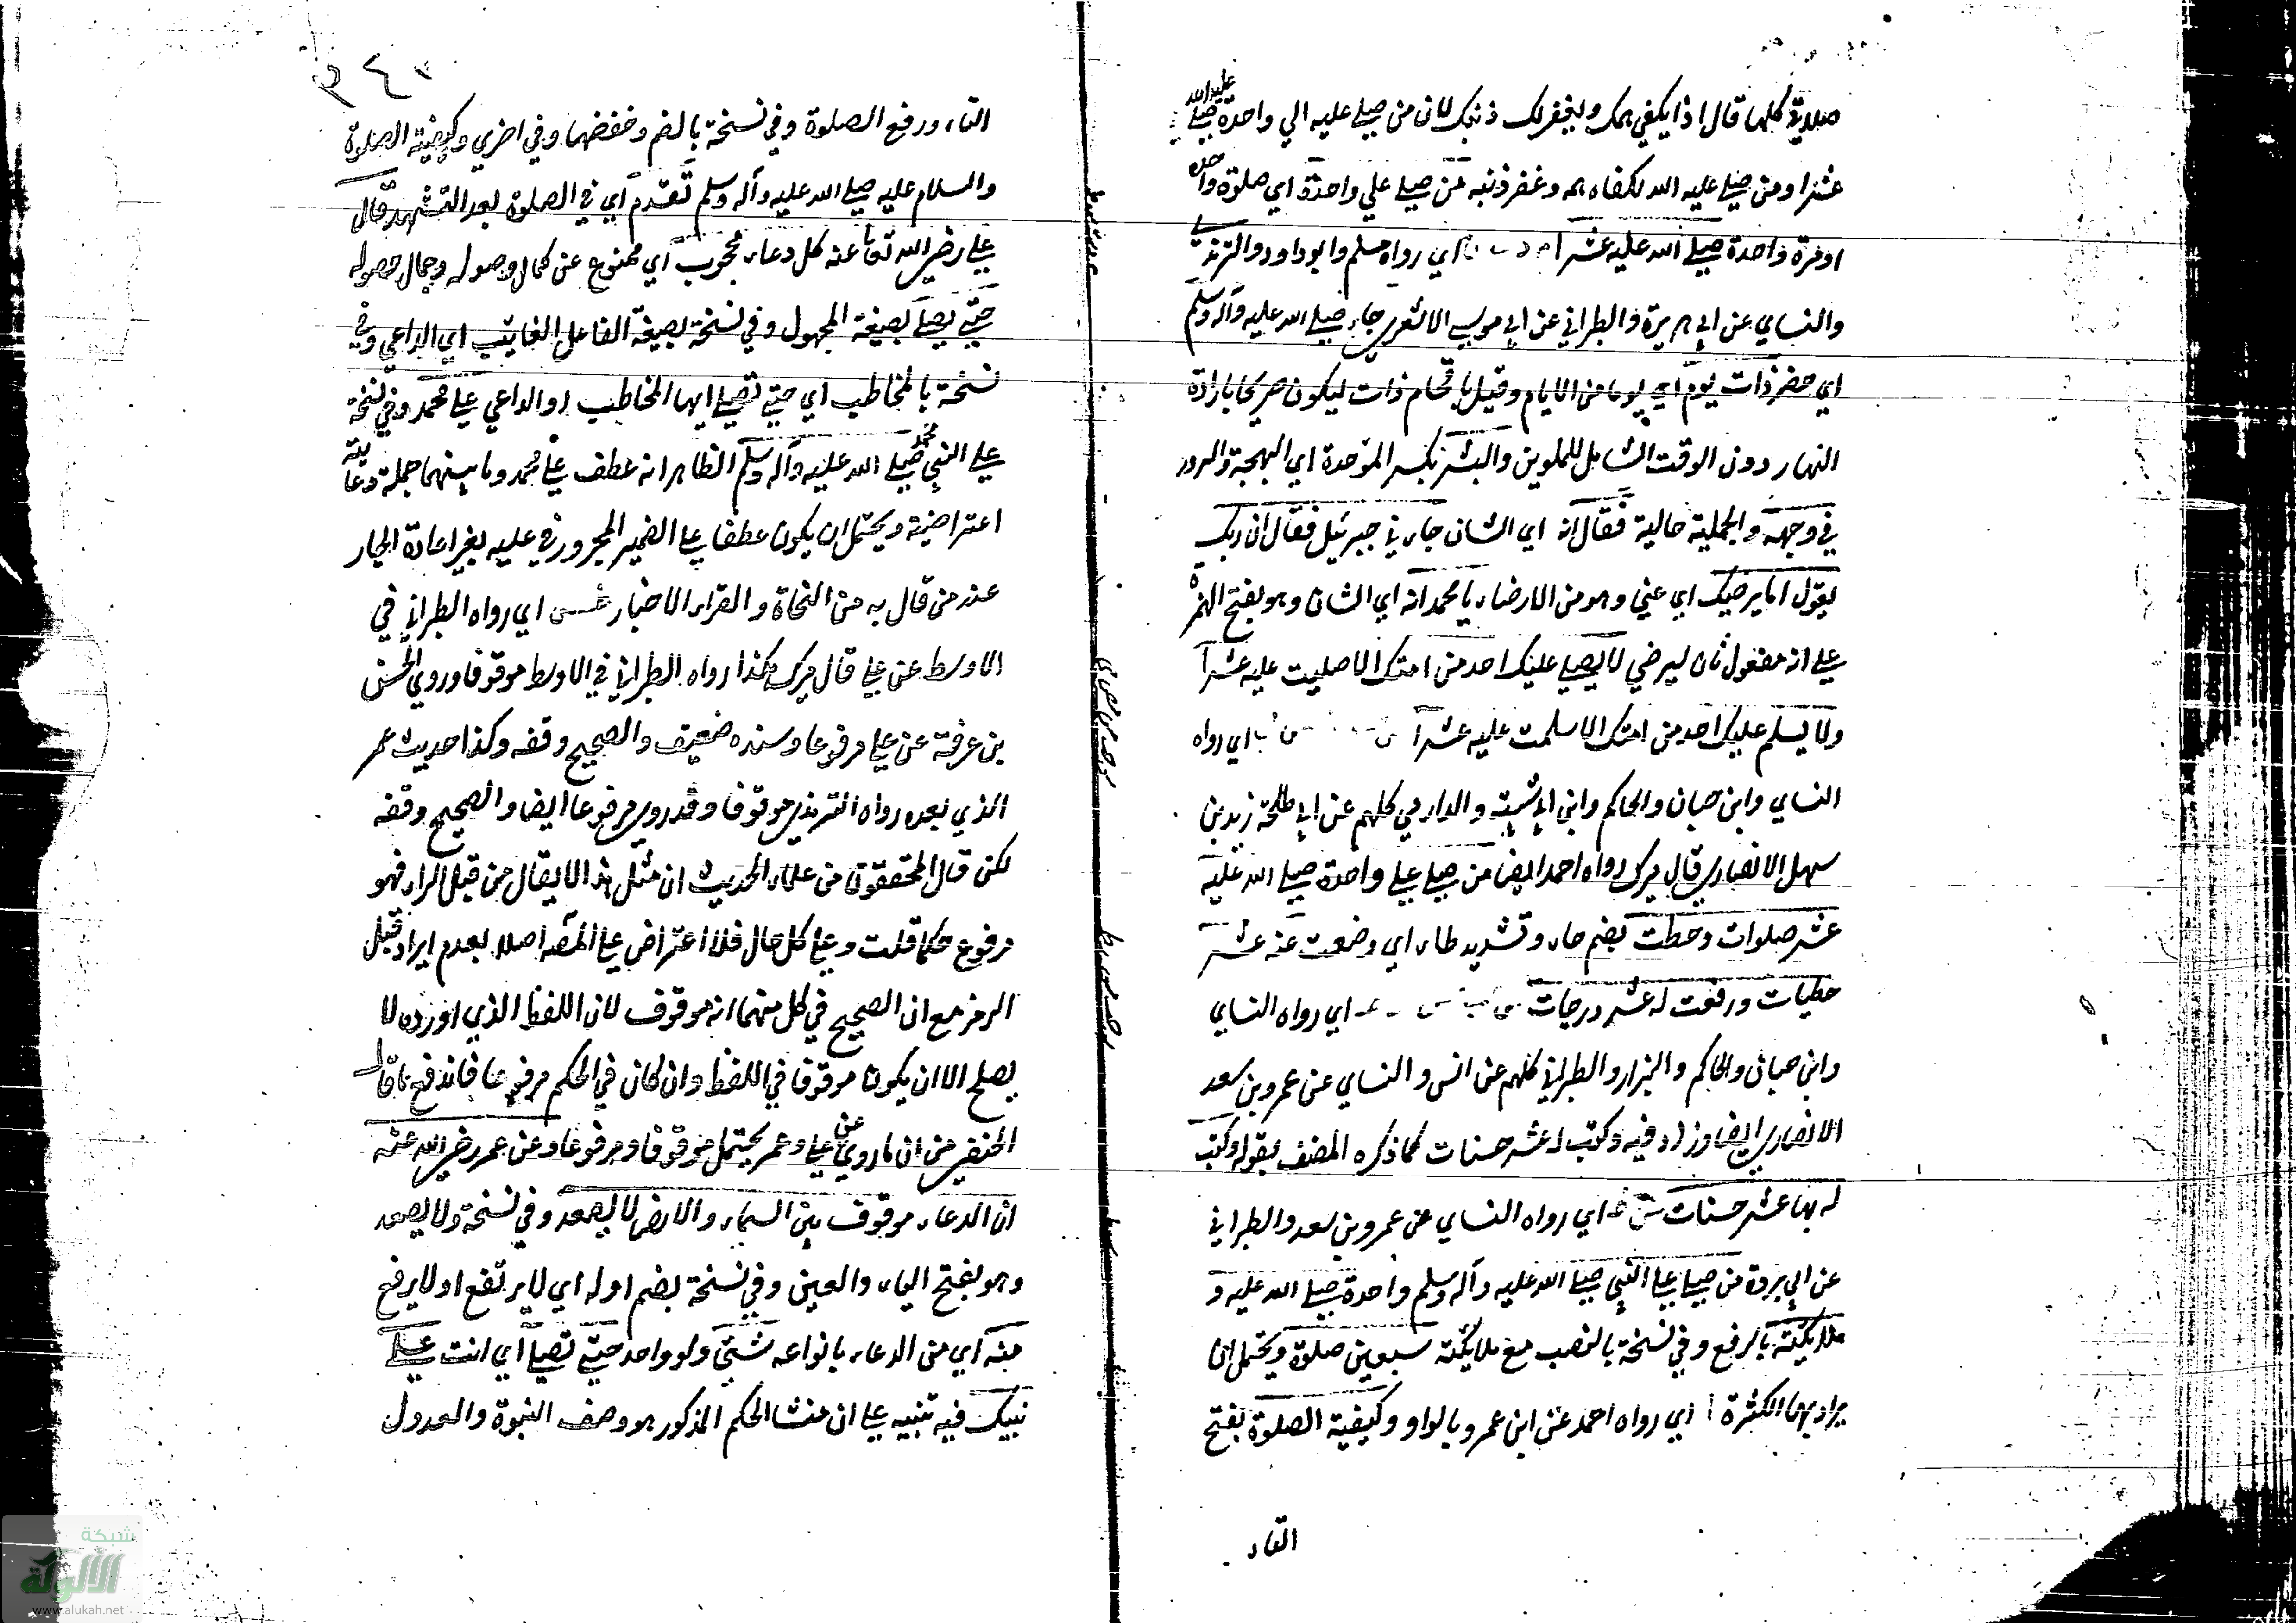 صلاتي كلها قال اذا يكفي همك ويغفر لك ذنبك لان من صلي عليه الي واحدة صلي عليه الله
عشرا ومن صلي عليه الله لكفاه همه وغفر ذنبه من صلي علي واحدة اي صلوة واحده
او مرة واحدة صلي الله عليه عشرا م د ت س اي رواه مسلم وابو داود والترمذي
والنساي عن ابي هريرة والطبراني عن ابي موسي الاشعري جاء صلي الله عليه وآله وسلم
اي حضر ذات يوم اي يوما من الايام وقيل باقحام ذات ليكون صريحا بارادة
النهار دون الوقت الشامل للملوين والبشر بكسر الموحدة اي البهجة والسرور
في وجهه والجملة حالية فقال انه اي الشان جاءني جبرئيل فقال ان ربك
يقول اما يرضيك اي عني وهو من الارضاء يا محمد انه اي الشان وهو بفتح الهمزة
علي انه مفعول ثان ليرضي لا يصلي عليك احد من امتك الا صليت عليه عشرا
ولا يسلم عليك احد من امتك الا سلمت عليه عشرا اي رواه
النساي وابن حبان والحاكم وابن ابي شيبة والدارمي كلهم عن ابي طلحة زيد بن
سهل الانصاري قال ميرك رواه احمد ايضا من صلي علي واحدة صلي الله عليه
عشر صلوات وحطت بضم حاء وتشديد طاء اي وضعت عنه عشر
خطيات ورفعت له عشر درجات اي رواه النساي
وابن حبان والحاكم والبزار والطبراني كلهم عن انس والنساي عن عمرو بن سعد
الانصاري ايضا وزاد فيه وكتب له عشر حسنات كما ذكره المصنف بقوله وكتب
له بها عشر حسنات س ط اي رواه النساي عن عمرو بن سعد والطبراني
عن ابي بردة من صلي علي النبي صلي الله عليه وآله وسلم واحدة صلي الله عليه و
ملايكته بالرفع وفي نسخة بالنصب مع ملايكته سبعين صلوة ويحتمل ان
يراد بها الكثرة ا اي رواه احمد عن ابن عمرو بالواو وكيفية الصلوة بفتح
التاء
التاء ورفع الصلوة وفي نسخة بالضم وخفضها وفي اخري وكيفية الصلوة
والسلام عليه صلي الله عليه وآله وسلم تقدم اي في الصلوة بعد التشهد قال
علي رضي الله تعا عنه كل دعاء محجوب اي ممنوع عن كمال وصوله وجمال حصوله
حتي يصلي بصيغة المجهول وفي نسخة بصيغة الفاعل الغايب اي الداعي وفي
نسخة بالمخاطب اي حتي تصلي ايها المخاطب او الداعي علي محمد وفي نسخة
علي النبي محمد صلي الله عليه وآله وسلم الظاهر انه عطف علي محمد وما بينهما جملة دعائية
اعتراضية ويحتمل ان يكون عطفا علي الضمير المجرور في عليه بغير اعادة الجار
عند من قال به من النحاة والقراء الاخيار طس اي رواه الطبراني في
الاوسط عن علي قال ميرك هكذا رواه الطبراني في الاوسط موقوفا وروي الحسن
بن عرفة عن علي مرفوعا وسنده ضعيف والصحيح وقفه وكذا حديث عمر
الذي بعده رواه الترمذي موقوفا وقد روي مرفوعا ايضا والصحيح وقفه
لكن قال المحققون من علماء الحديث ان مثل هذا لا يقال من قبل الراي فهو
مرفوع حكما قلت وعلي كل حال فلا اعتراض علي المصه اصلا بعدم ايراد قبل
الرمز مع ان الصحيح في كل منهما انه موقوف لان اللفظ الذي اورده لا
يصلح الا ان يكون موقوفا في اللفظ وان كان في الحكم مرفوعا فاندفع ما قال
الحنفي من ان ما روي عن علي وعمر يحتمل موقوفا ومرفوعا وعن عمر رضي الله عنه
ان الدعاء موقوف بين السماء والارض لا يصعد وفي نسخة ولا يصعد
وهو بفتح الياء والعين وفي نسخة بضم اوله اي لا يرتفع او لا يرفع
منه اي من الدعاء بانواعه شئ ولو واحد حتي تصلي اي انت علي
نبيك فيه تنبيه علي ان منشا الحكم المذكور هو وصف النبوة والعدول
شبكة
الألوكة
www.alukah.net